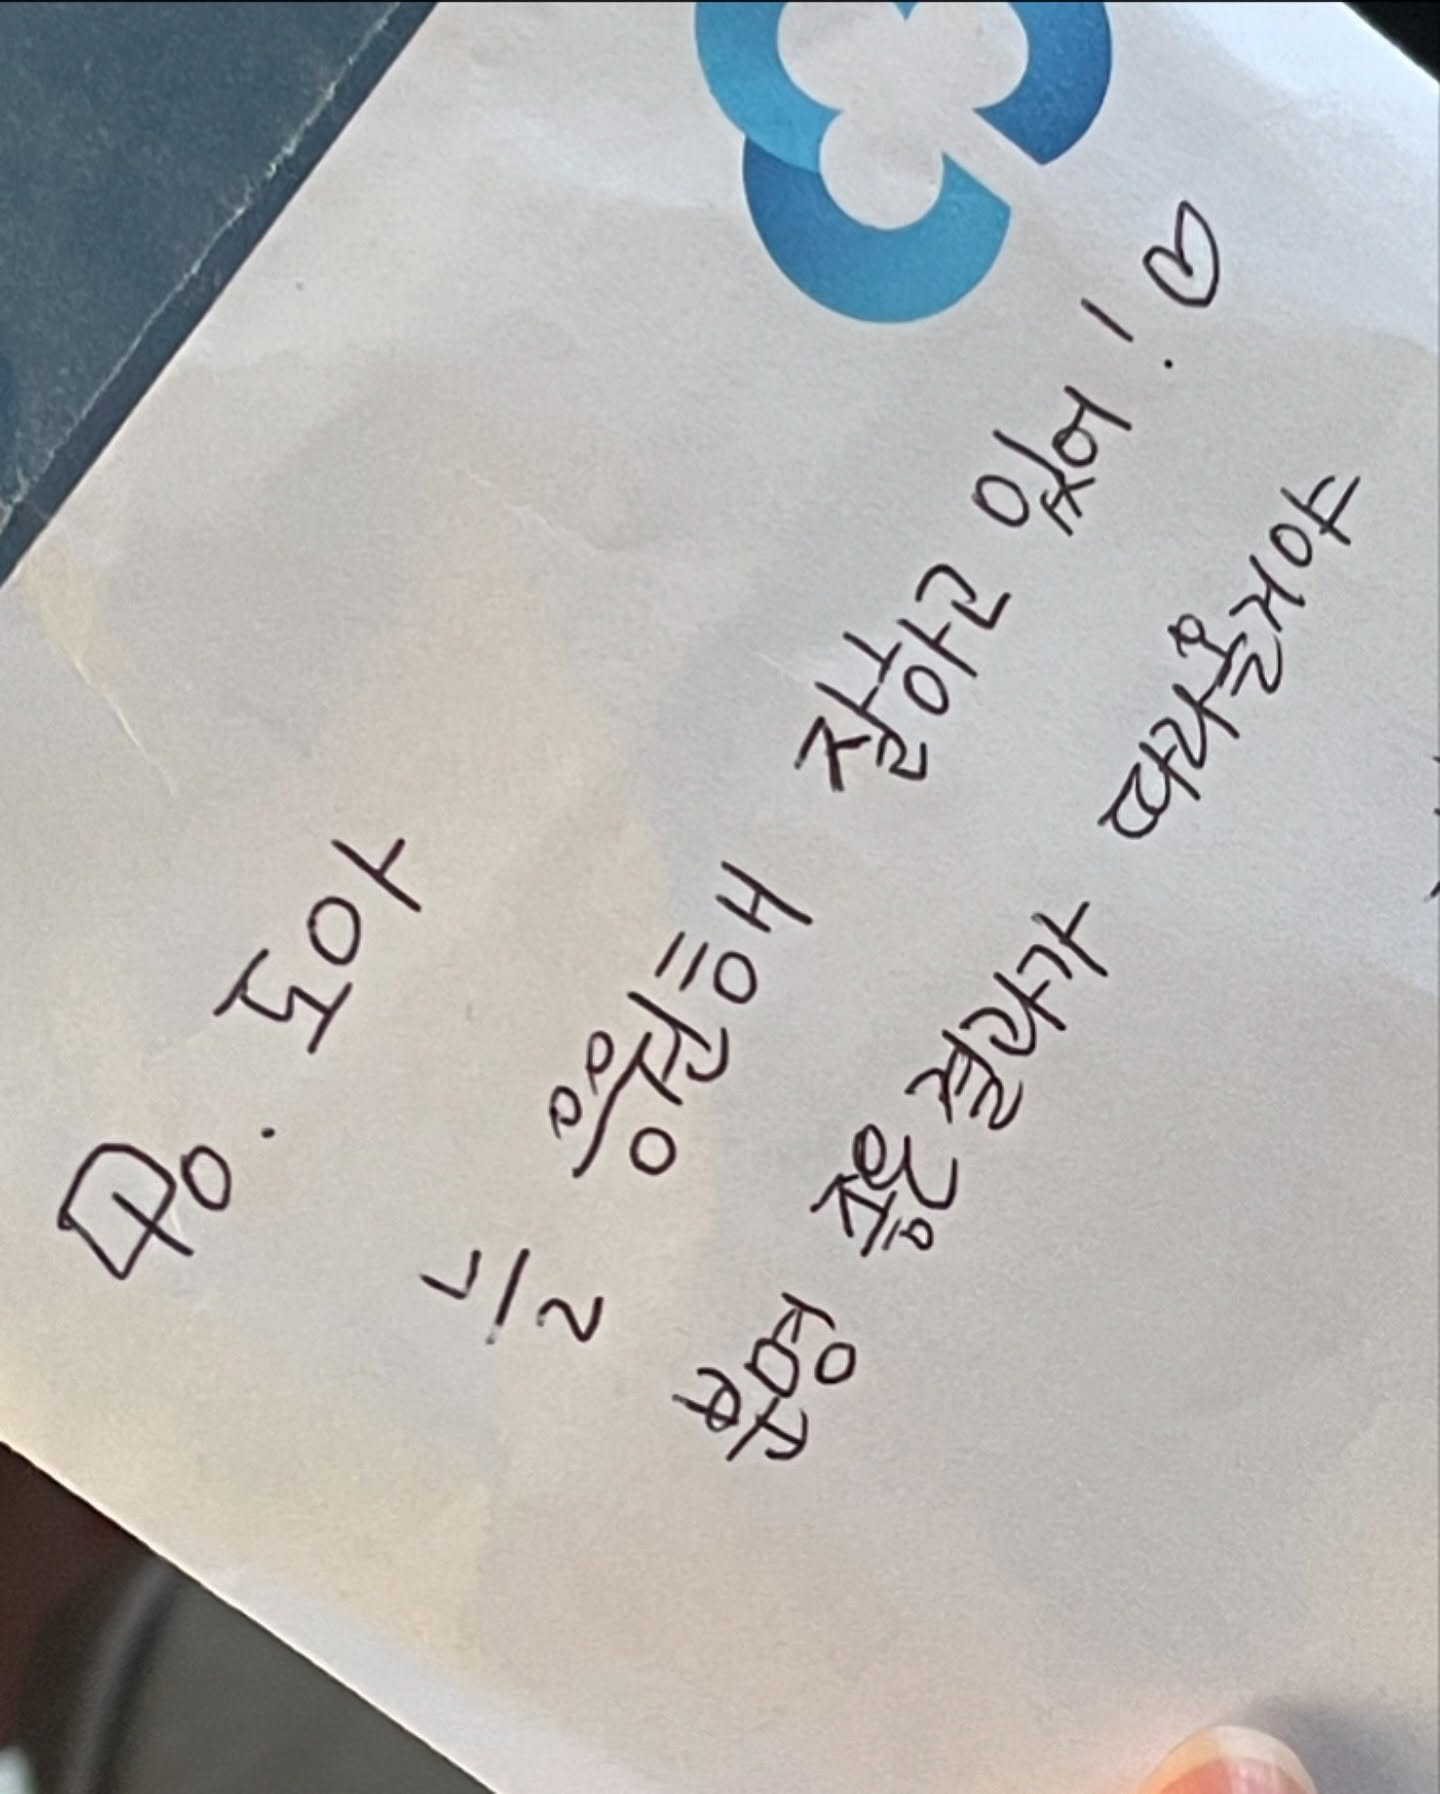 To. 도아
늘 응원해 잘하고 있어! ♡
분명 좋은 결과가 따라올거야